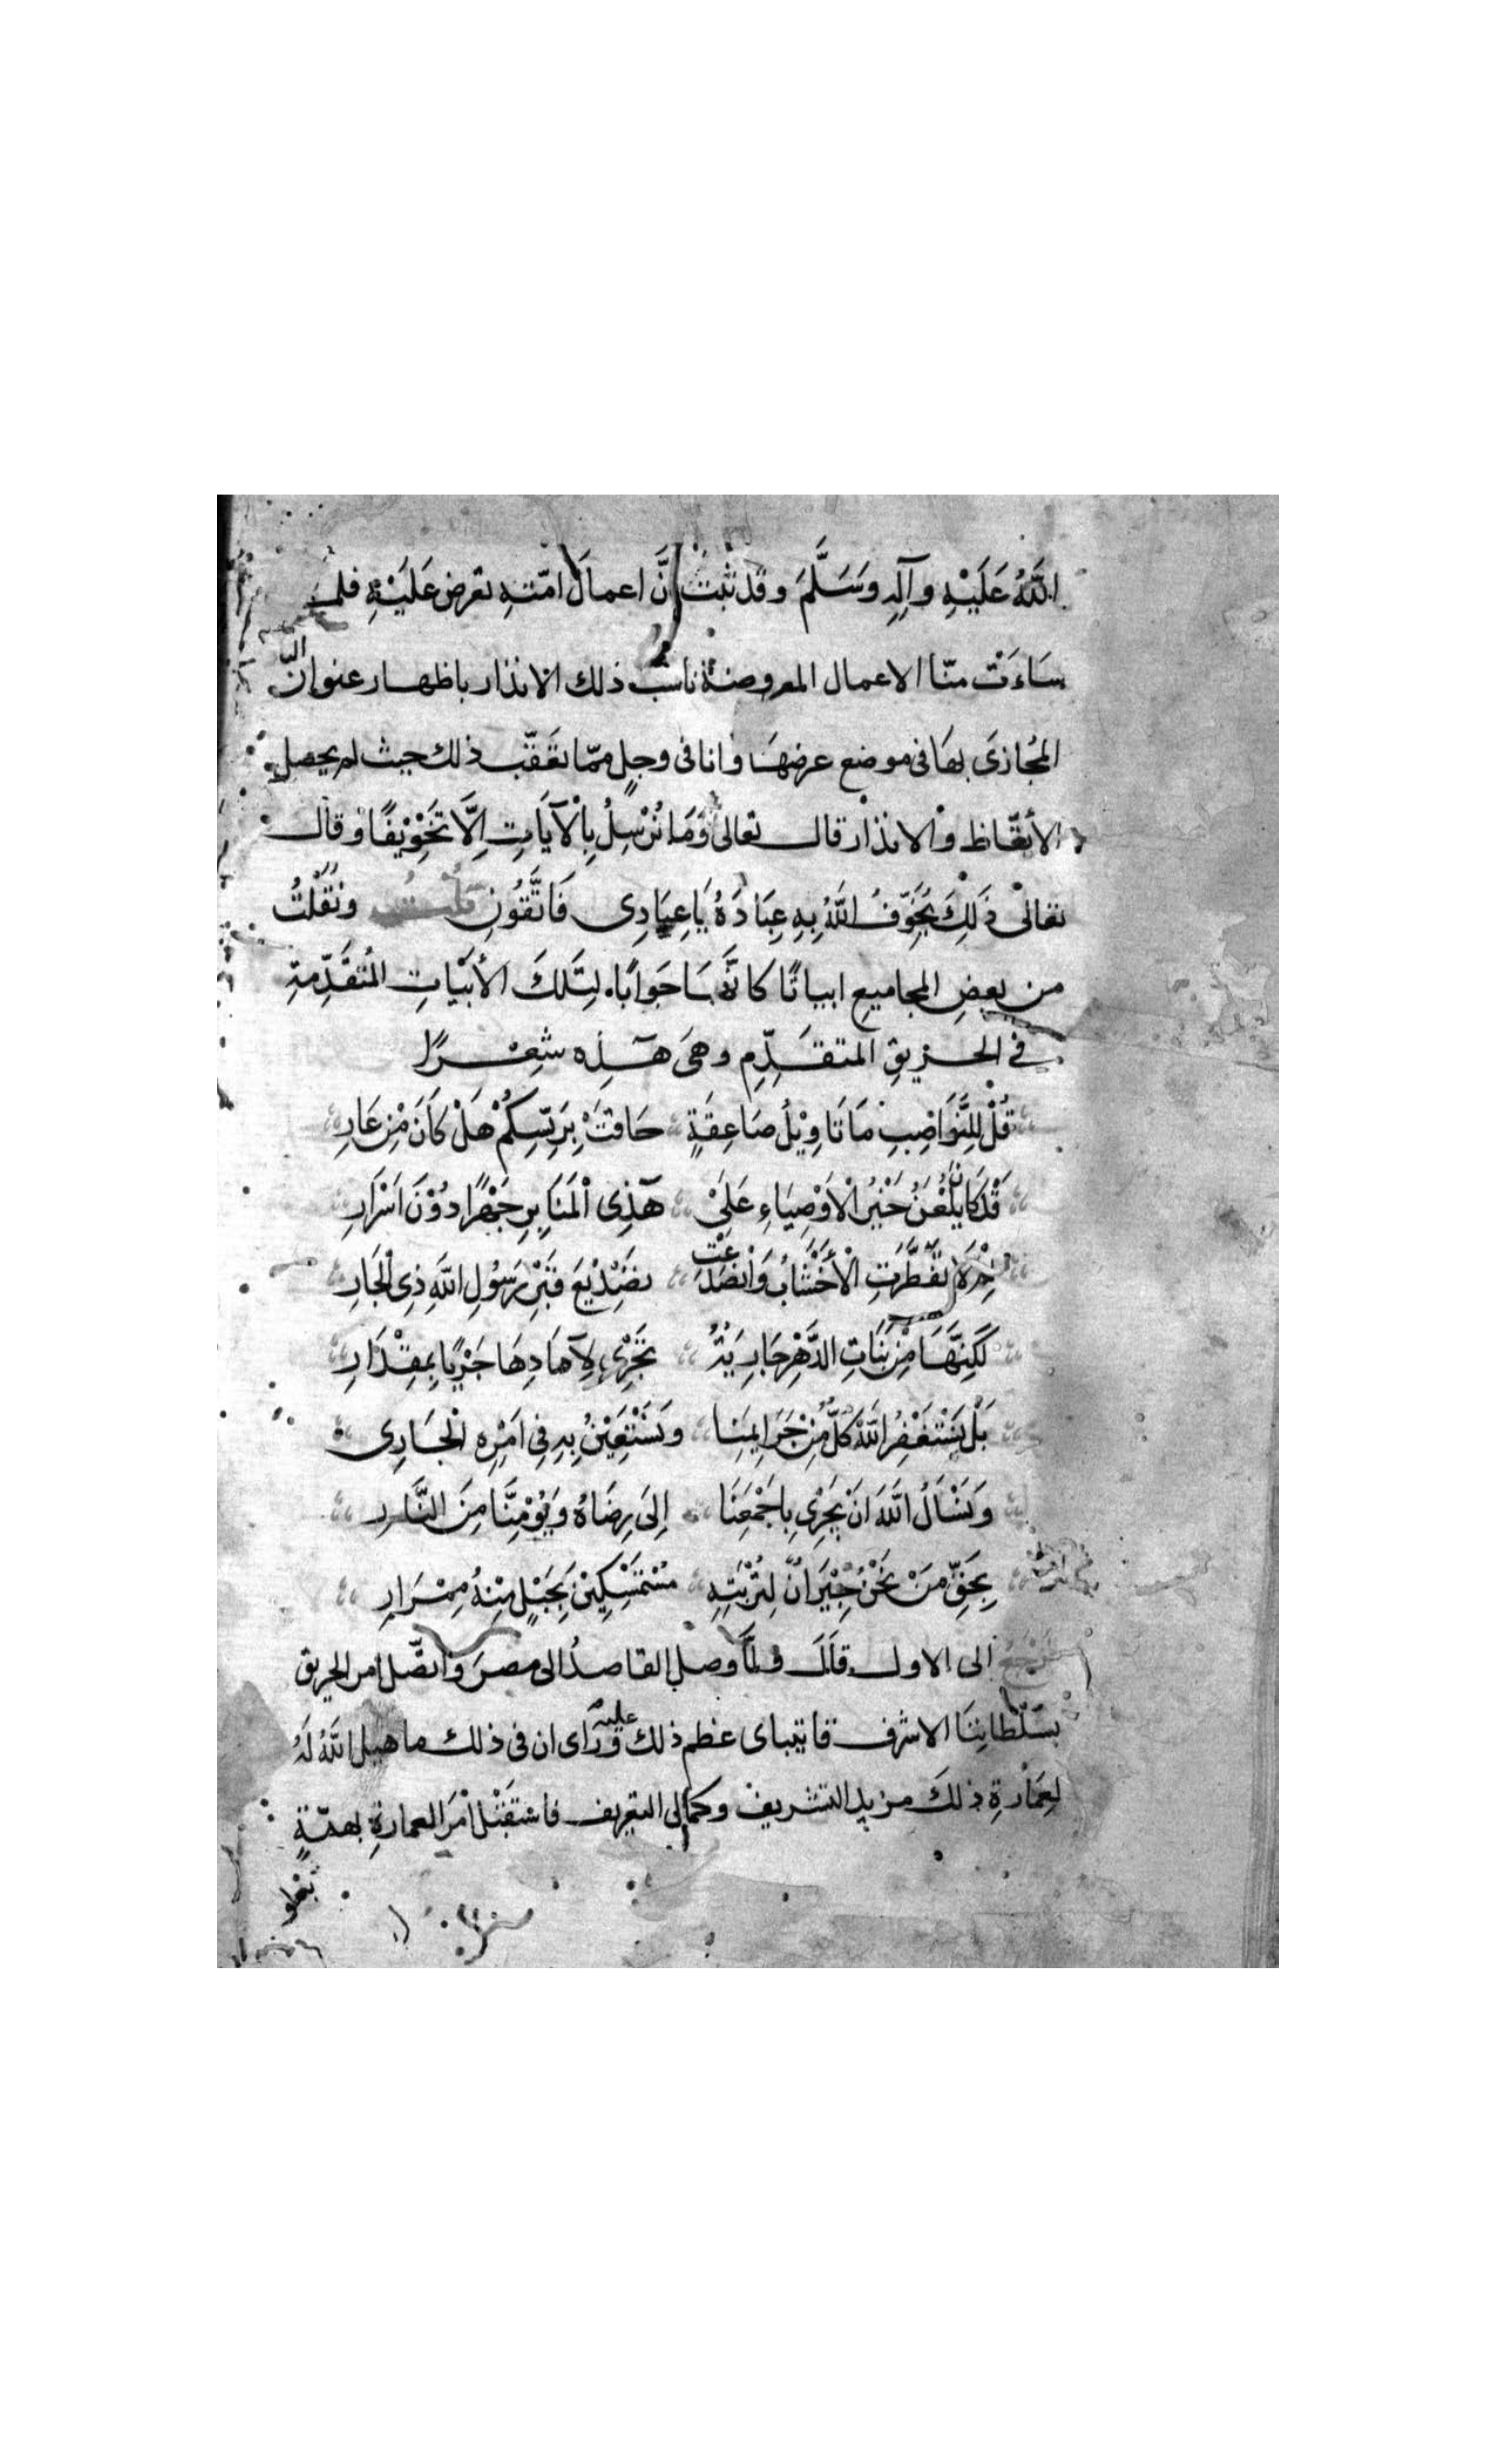 اللَّهُ عَلَيْهِ وآلِهِ وَسَلَّمَ وقد ثبت أنَّ اعمالَ امّته تعرض عَلَيْهِ فلما
سَاءَتْ منّا الاعمال المعروضة ناسب ذلك الانذار باظهار عنوان النّار
المُجازَى بهَا فى موضع عرضهَا وانا فى وجلٍ ممّا يَعَقّب ذلك حيث لم يحصل
الأتّعاظ والانذار قال تعالى وَمَا نُرْسِلُ بِالْآيَاتِ إِلَّا تَخْوِيْفًا وقال
تعالى ذَلِكَ يُخَوِّفُ اللَّهُ بِهِ عِبَادَهُ يَا عِبَادِى فَاتَّقُونِ قلت ونَقَلْتُ
من بعضِ المجاميعِ ابياتًا كانَّهَا جَوابًا لِتِلكَ الأبْيَاتِ المُتَقَدِّمةِ
فى الحريقِ المتقَدِّمِ وهىَ هَذِه شِعْرًا
قُلْ لِلنَّوَاصِبِ مَا تَاوِيْلُ صَاعِقَةٍ حَافتْ بِرَيّسِكُمْ هَلْ كَانَ مِنْ عَارِ
قَدْ كَانَ يُلْعَنُ خَيْرُ الْأوْصِيَاءِ عَلَىْ هَذِى الْمَنَابِرِ جَهْرًا دُوْنَ اَسْرَارِ
تَفَطَّرَتِ الْأخْشَابُ وَانْصَدَعَتْ بَرَسُولِ اللَّهِ ذِى الْجَارِ
لَكِنَّهَا مِنْ بَنَاتِ الدَّهْرِ جَارِيَةٌ تَجْرِىْ لِآمَادِهَا جَرْيًا بِمِقْدَارِ
بَلْ نَسْتَغْفِرُ اللَّهَ كُلٌّ مِنْ جَرَايِمِنَا وَنَسْتَعِيْنُ بِهِ فِى اَمْرِهِ الْجَارِى
وَنَسْأَلُ اللَّهَ اَنْ يَجْرِىْ بِاَجْمَعِنَا إِلَى رِضَاهُ وَيُؤْمِنَّا مِنَ النَّارِ
بِحَقِّ مَنْ نَحْنُ جِيْرَانٌ لِتُرْبَتِهِ مُسْتَمْسِكِيْنَ بِحَبْلٍ مِنْهُ مِمْرَارِ
نرجع الى الاول قال ولمَّا وصل القاصدُ الى مصرَ واتصَّل امر الحريق
بسَلْطانِنَا الاشرف قايتباى عظم ذلك عليه ورَأى ان فى ذلك ما هيل اللَّهُ لَهُ
لِعِمَارةِ ذلكَ مزيد التشريف وكمالى التعريف فاستقبَلْ اَمْرَ العمارةِ بهمّةٍ
تعلو